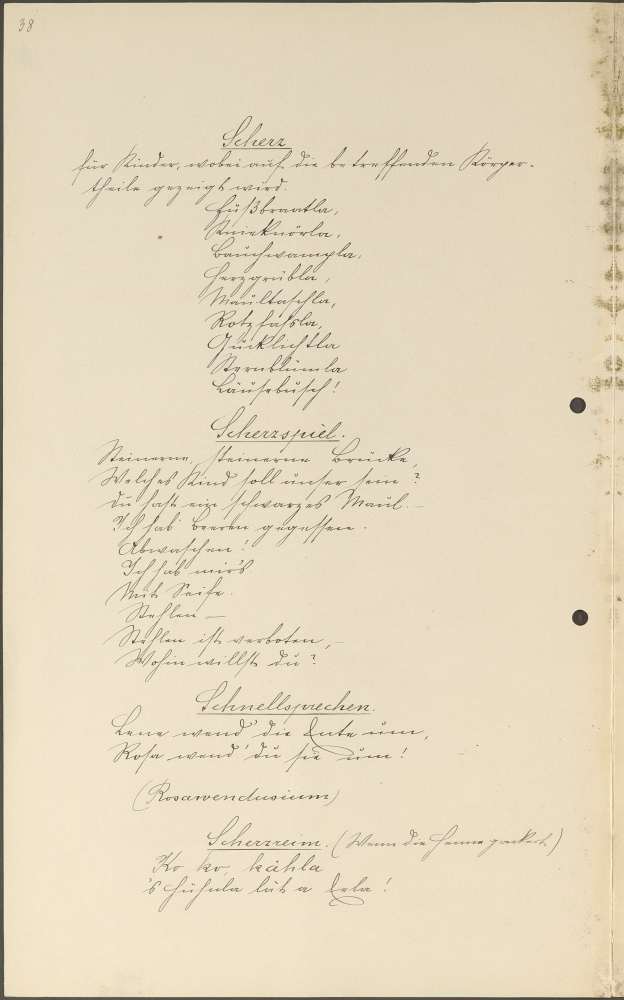 38
Scherz
für Kinder, wobei auf die betreffenden Körper-
theile gezeigt wird.
Fußbraatla,
Knieknörla,
Bauchwampla,
Herzgrübla,
Maultaschla,
Rotzfassla,
Gucklichtla
Sternblümla
Läusebusch!
Scherzspiel.
Steinerne, steinerne Brücke,
Welches Kind soll unser sein?
Du hast ein schwarzes Maul. –
Ich hab' Beeren gegessen.
Abwaschen!
Ich hab mir's
Mit Seife.
Stehlen –
Stehlen ist verboten, –
Wohin willst du?
Schnellsprechen.
Lene wend' die Ente um,
Rosa wend' du sie um!
(Rosawendusium)
Scherzreim. (Wenn die Henne gackert.)
Ko, ko, kähla
's Huhnla lät a Ekla!